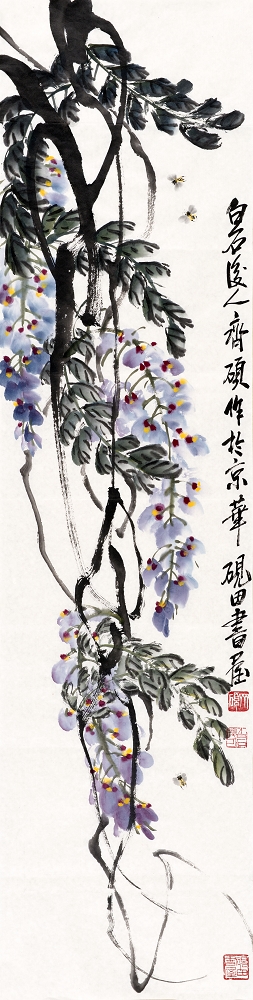 白石后人齊碩作於京華硯田書屋